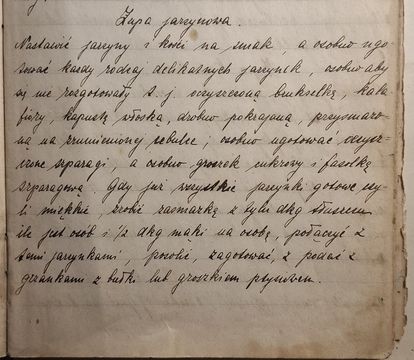 Zupa jarzynowa.
Nastawić jarzyny i kości na smak, a osobno ugo-
tować każdy rodzaj delikatnych jarzynek, osobno aby
się nie rozgotowały t. j. oczyszczoną brukselkę, kala
fiory, kapustę włoską, drobno pokrajaną, przysmażo
na na zrumienionej cebulce; osobno ugotować oczysz-
czone szparagi, a osobno groszek cukrowy i fasolkę
szparagową. Gdy już wszystkie jarzynki gotowe czy
li miękkie, zrobić zasmażkę z tylu dkg tłuszczu
ile jest osób i 1/2 dkg mąki na osobę, połączyć z
temi jarzynkami, posolić, zagotować, i podać z
grzankami z bułki lub groszkiem ptysiowem.